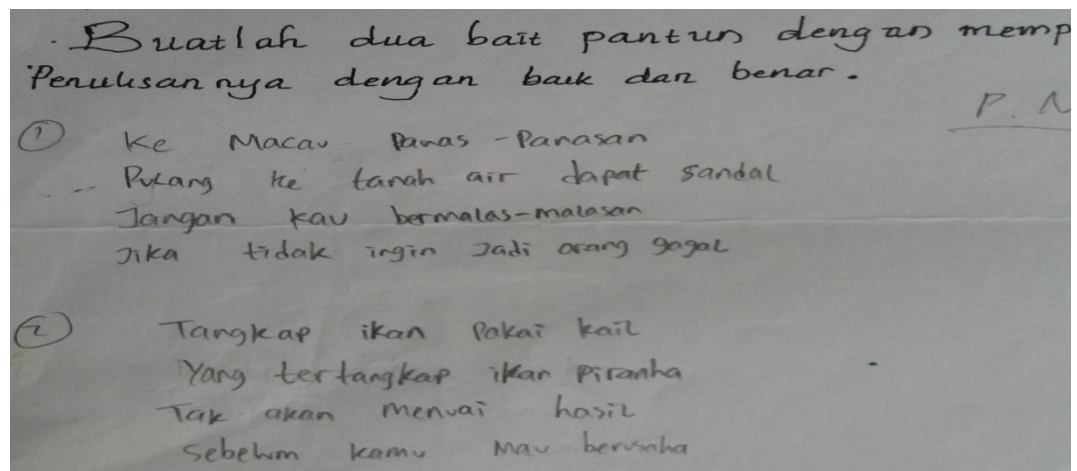 . Buatlah dua bait pantun dengan memp
Penulisannya dengan baik dan benar.
P. N
① Ke Macau Panas-Panasan
Pulang ke tanah air dapat sandal
Jangan kau bermalas-malasan
Jika tidak ingin Jadi orang gagal
② Tangkap ikan Pakai kail
Yang tertangkap ikan Piranha
Tak akan menuai hasil
Sebelum kamu Mau berusaha